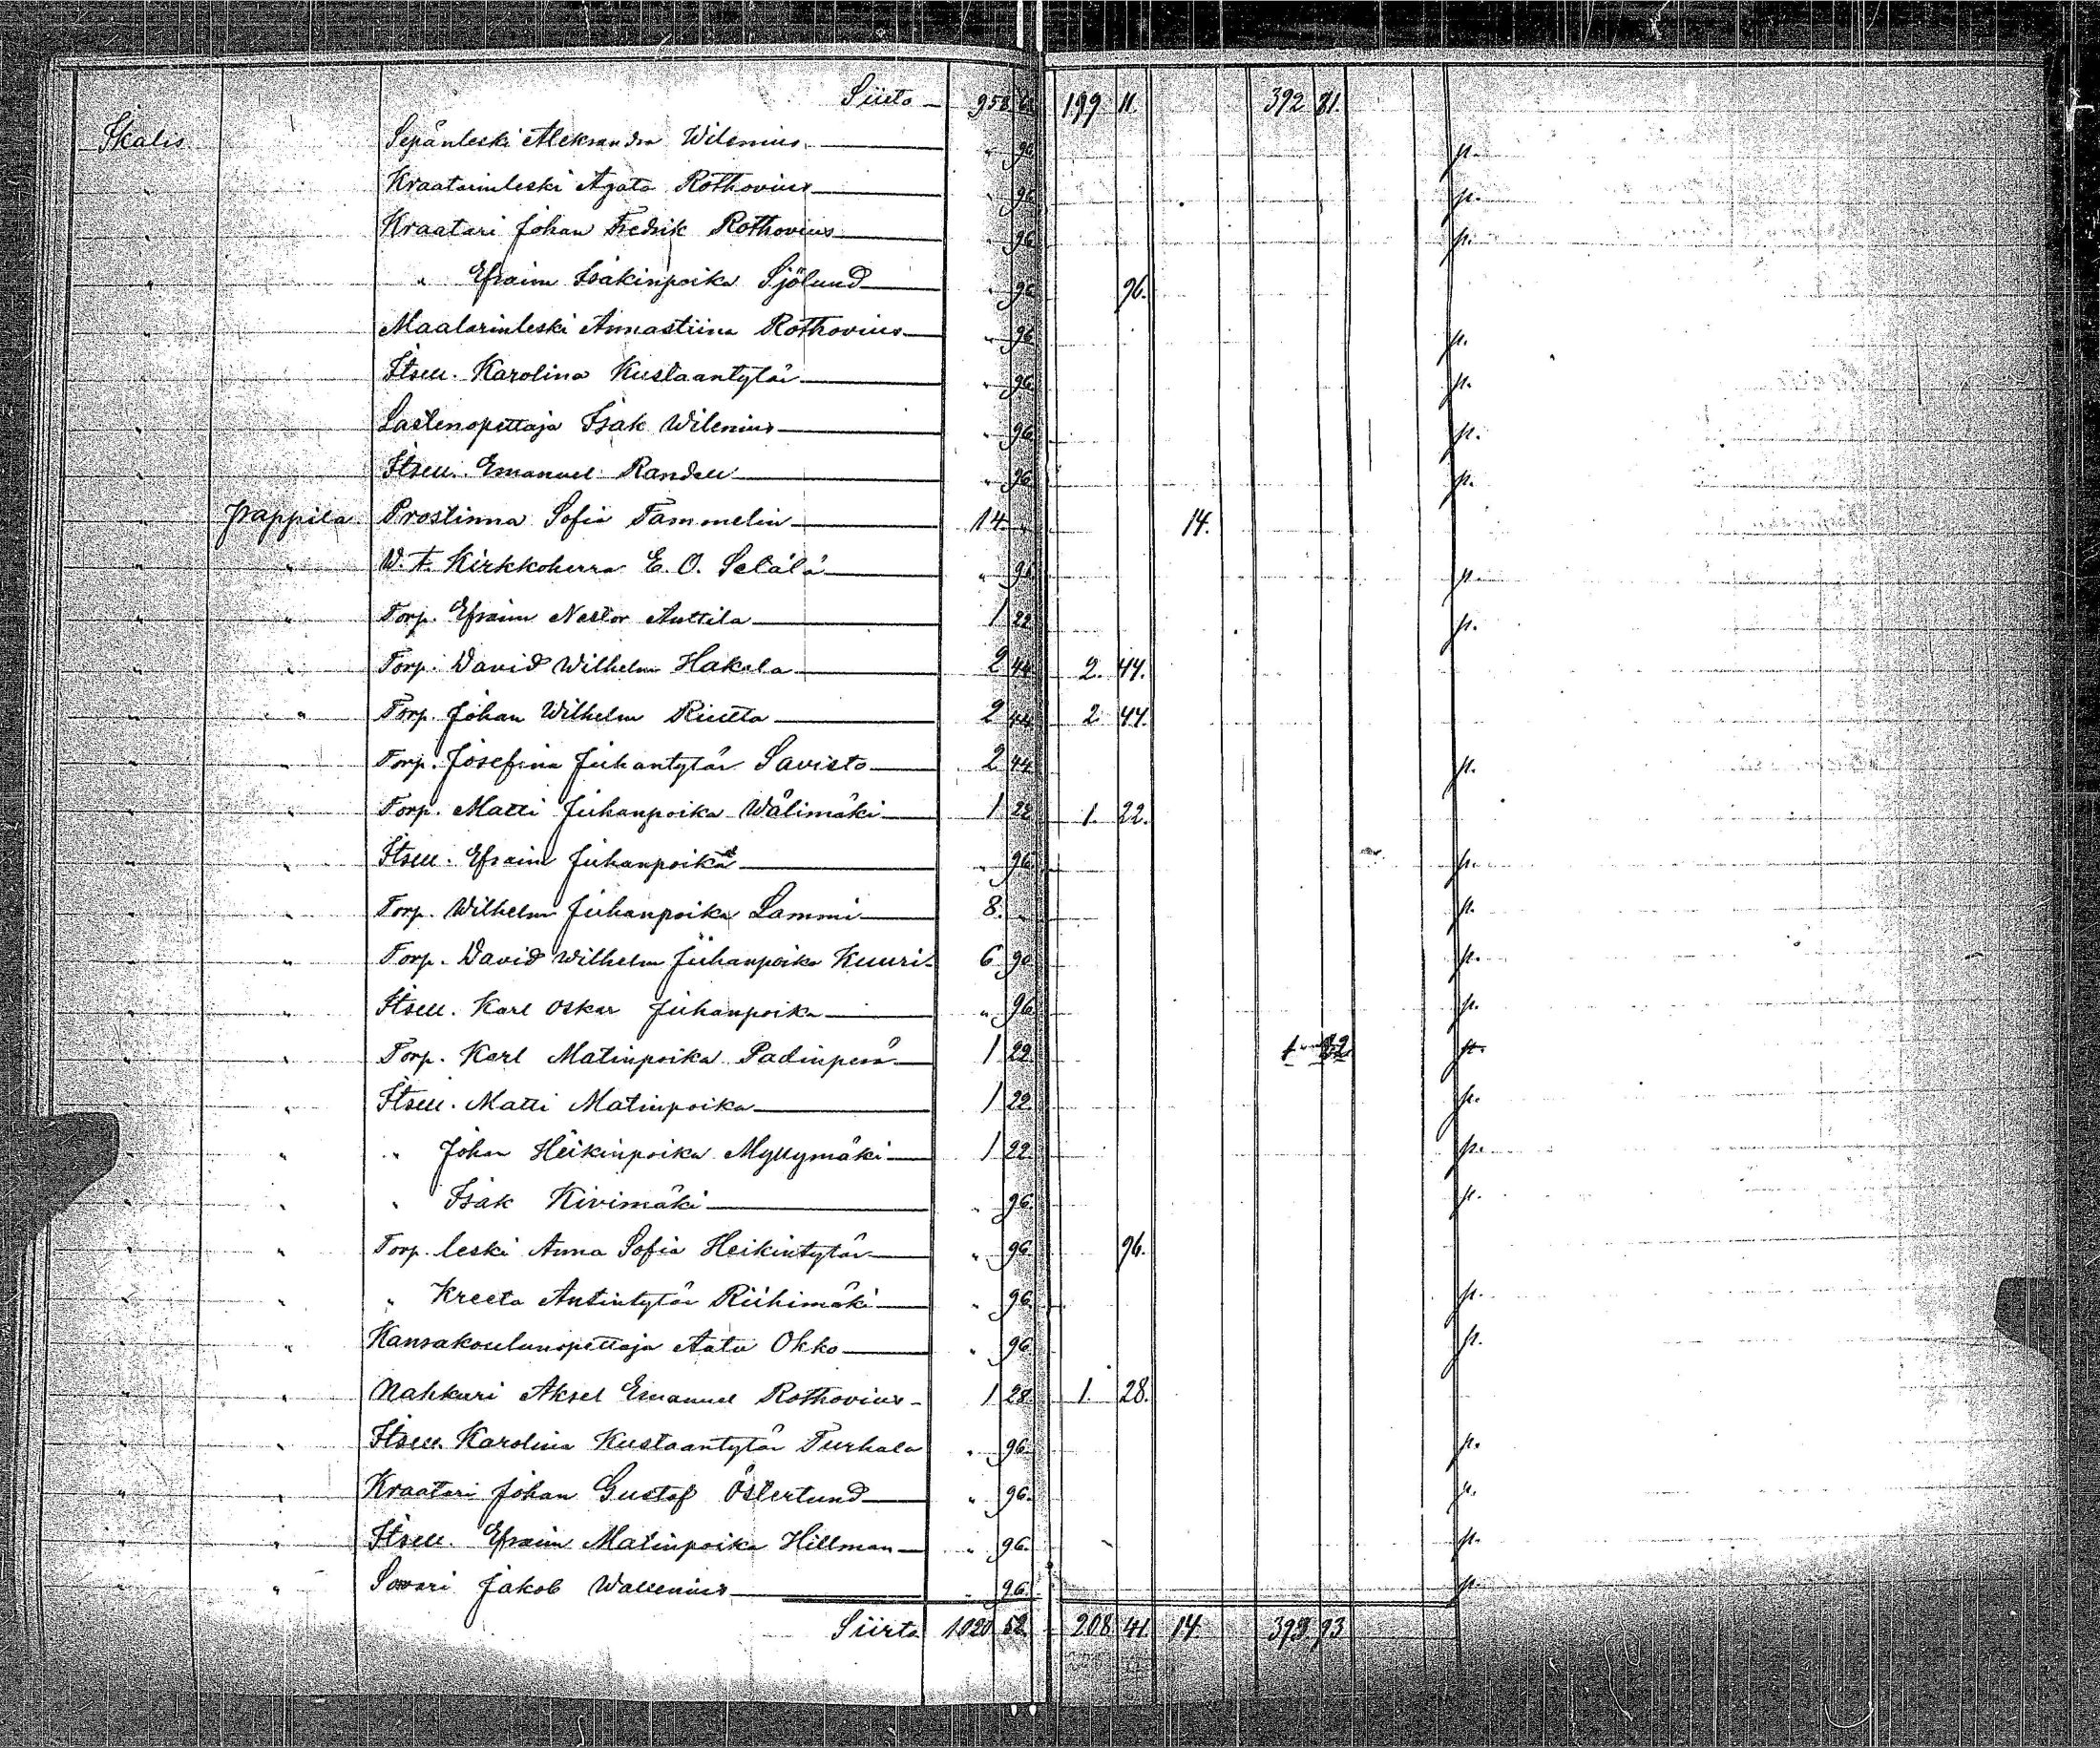 Siirto — 958 199 11. 392 81.
Ikalis Sepänleski Aleksandra Wilenius — " 96 p.
" Kraatarinleski Agata Rothovius — " 96 p.
" Kraatari Johan Fredrik Rothovius — " 96 p.
" " Efraim Isakinpoika Sjölund — " 96 96.
" Maalarinleski Annastiina Rothovius — " 96 p.
" Itsell. Karolina Kustaantytär — " 96 p.
" Lastenopettaja Isak Wilenius — " 96 p.
" Itsell. Emanuel Randell — " 96 p.
" Pappila Prostinna Sofia Tammelin — 14 " 14.
" " W. t. Kirkkoherra E. O. Selälä — " 96 p.
" " Torp. Efraim Nestor Anttila — 1 22 p.
" " Torp. David Wilhelm Hakala — 2 44 2. 44.
" " Torp. Johan Wilhelm Riutta — 2 44 2 44.
" " Torp. Josefina Juhantytär Savisto — 2 44 p.
" " Torp. Matti Juhanpoika Wälimäki — 1 22 1. 22.
" " Itsell. Efraim Juhanpoika — " 96 p.
" " Torp. Wilhelm Juhanpoika Lammi — 8. " p.
" " Torp. David Wilhelm Juhanpoika Kuuri — 6 90 p.
" " Itsell. Karl Oskar Juhanpoika — " 96 p.
" " Torp. Karl Matinpoika Padinperä — 1 22 p.
" " Itsell. Matti Matinpoika — 1 22 p.
" " " Johan Heikinpoika Myllymäki — 1 22 p.
" " " Isak Kivimäki — " 96. p.
" " Torp. leski Anna Sofia Heikintytär — " 96. 96.
" " " Kreeta Antintytär Riihimäki — " 96 p.
" " Kansakoulunopettaja Aatu Okko — " 96. p.
" " Nahkuri Aksel Emanuel Rothovius — 1 28. 1. 28.
" " Itsell. Karolina Kustaantytär Turhala " 96. p.
" " Kraatari Johan Gustaf Österlund — " 96. p.
" " Itsell. Efraim Matinpoika Hillman — " 96. p.
" " Sorvari Jakob Wallenius — " 96. p.
Siirto 1020 52. 208 41 14 393 93